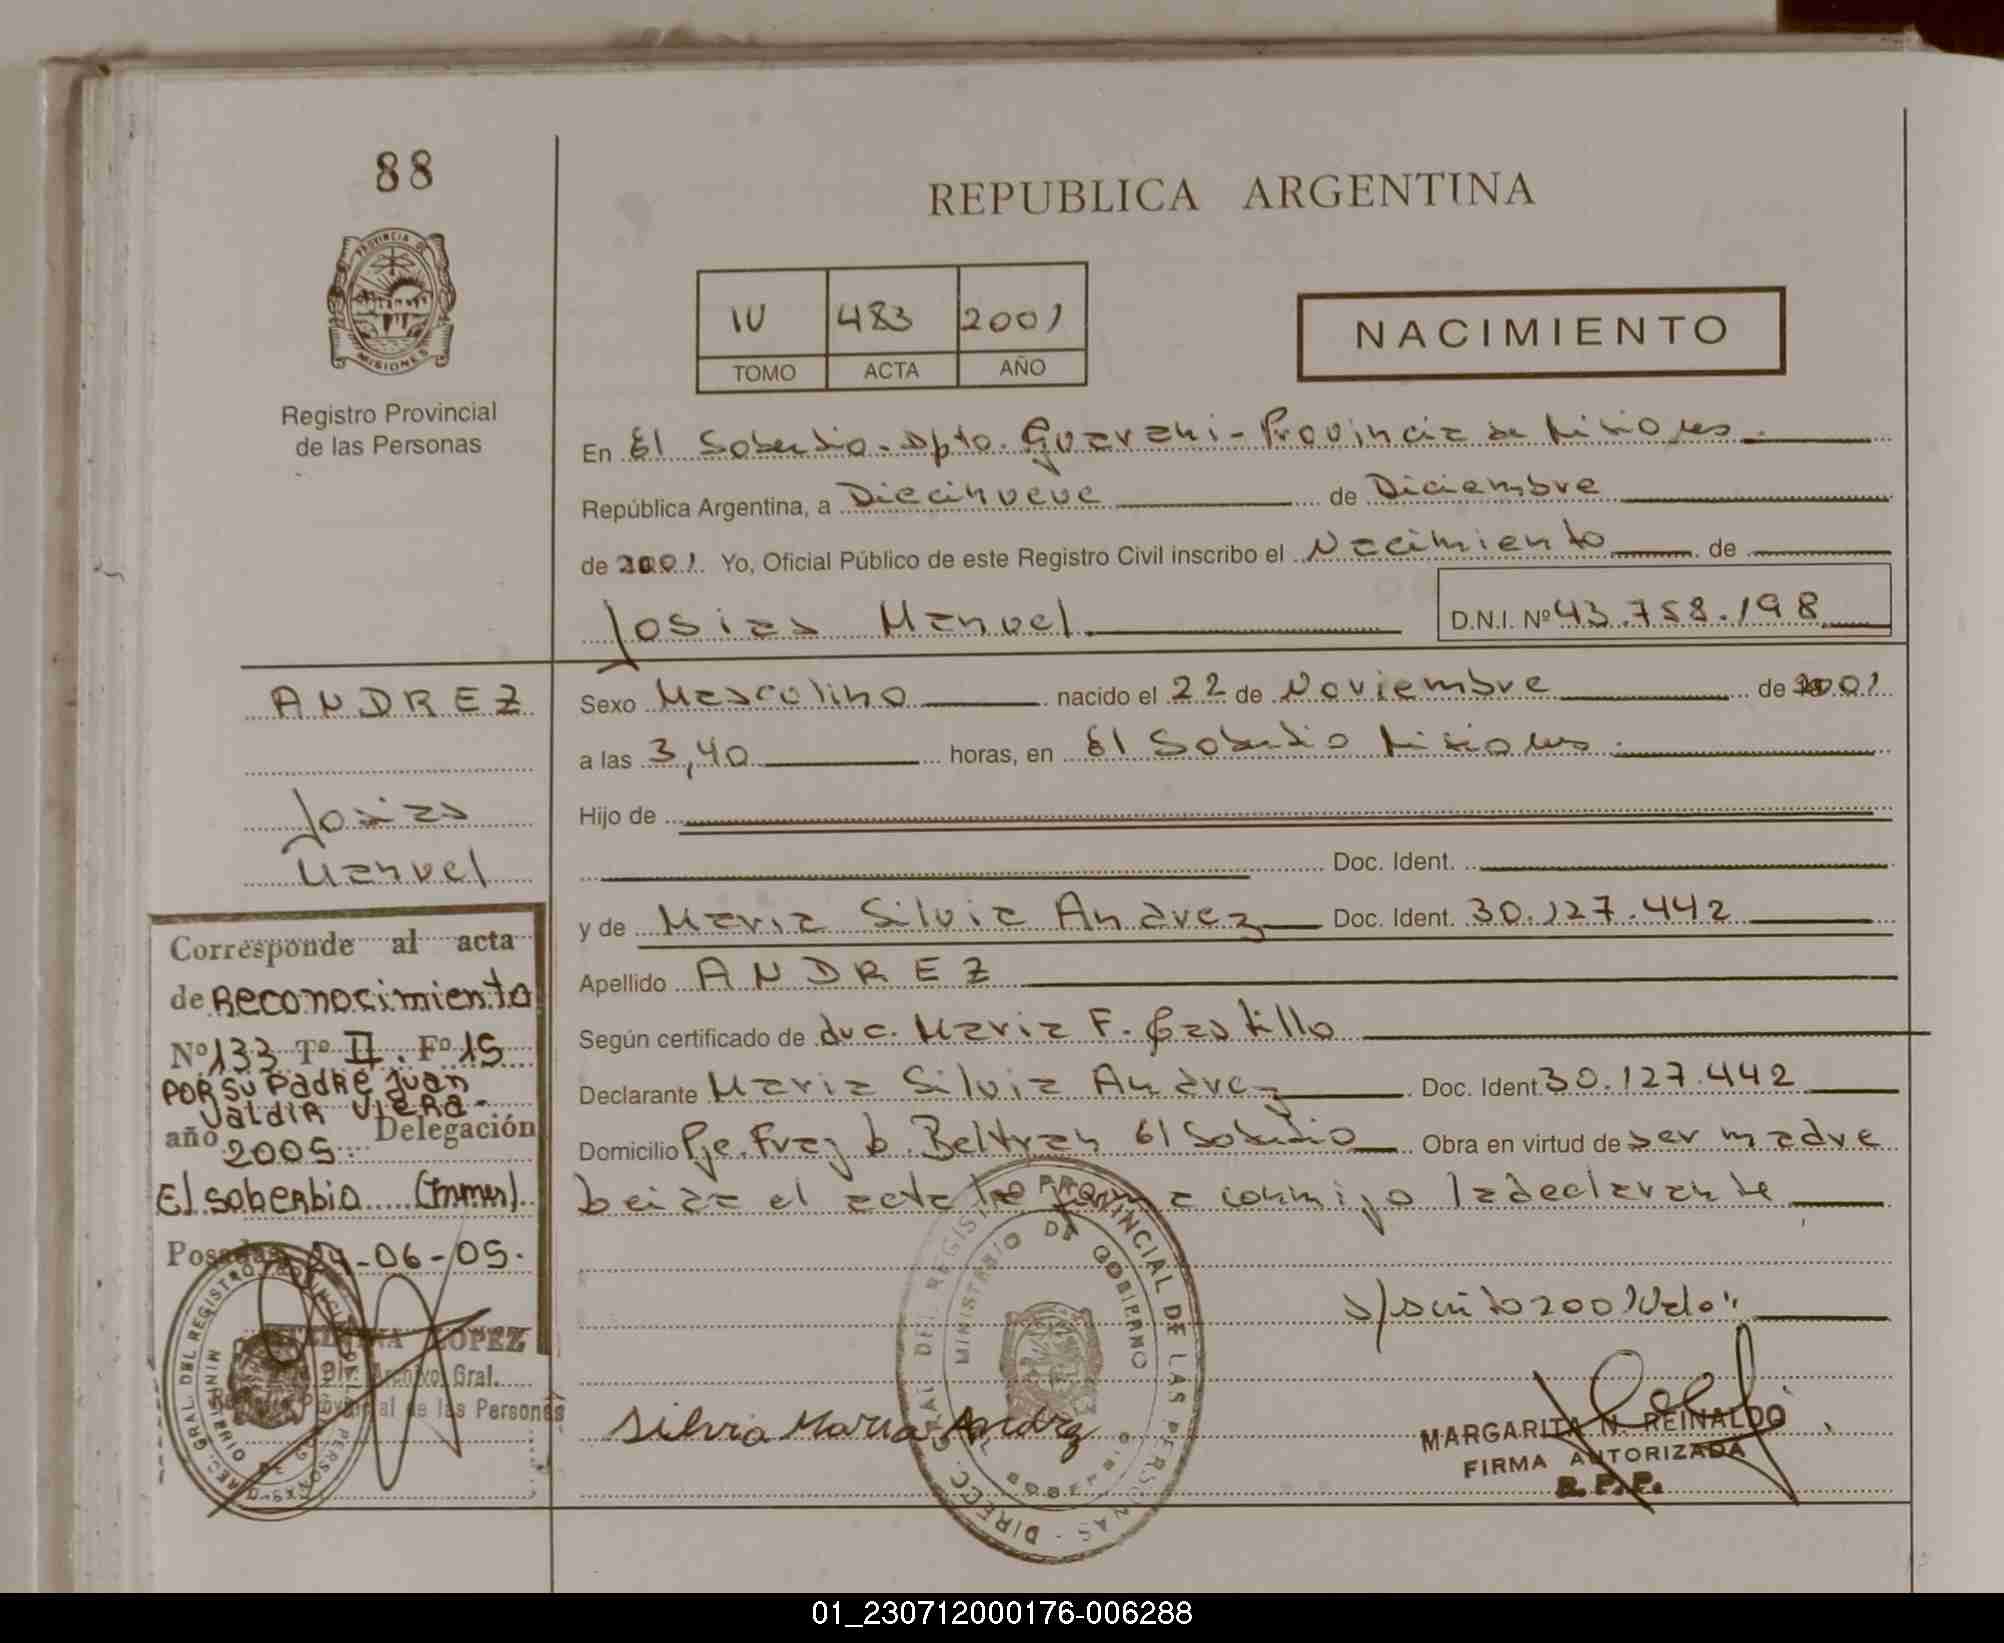 88
REPUBLICA ARGENTINA
PROVINCIA DE
MISIONES
IV 483 2001
TOMO ACTA AÑO
NACIMIENTO
Registro Provincial
de las Personas
En El Soberbio. Dpto. Guarani - Provincia de Misiones.
República Argentina, a Diecinueve de Diciembre
de 2001. Yo, Oficial Público de este Registro Civil inscribo el Nacimiento de
Josias Manuel D.N.I. Nº 43.758.198
ANDREZ
Josias
Manuel
Sexo Masculino nacido el 22 de Noviembre de 2001
a las 3,40 horas, en El Soberbio Misiones.
Hijo de
Doc. Ident.
y de Maria Silvia Andrez Doc. Ident. 30.127.442
Apellido ANDREZ
Según certificado de duc. Maria F. Castillo
Declarante Maria Silvia Andrez Doc. Ident. 30.127.442
Domicilio Pje. Fray b. Beltran El Soberbio Obra en virtud de ser madre
Leida el acta la firma conmigo la declarante
Corresponde al acta
de Reconocimiento
Nº 133 Tº II. Fº 15
POR SU Padre Juan
Valdir Viera.
año 2005 Delegación
El Soberbio (Inmer).
Posadas 24-06-05.
LOPEZ
Div. Archivo Gral.
Registro Provincial de las Personas
DIREC. GRAL. DEL REGISTRO PROVINCIAL DE LAS PERSONAS
MINISTERIO DE GOBIERNO
s/scrito 2001 Vale"
Silvia Maria Andrez
DIRECC. GRAL DEL REGISTRO PROVINCIAL DE LAS PERSONAS
MINISTERIO DE GOBIERNO
MARGARITA N. REINALDO
FIRMA AUTORIZADA
R.P.P.
01_230712000176-006288